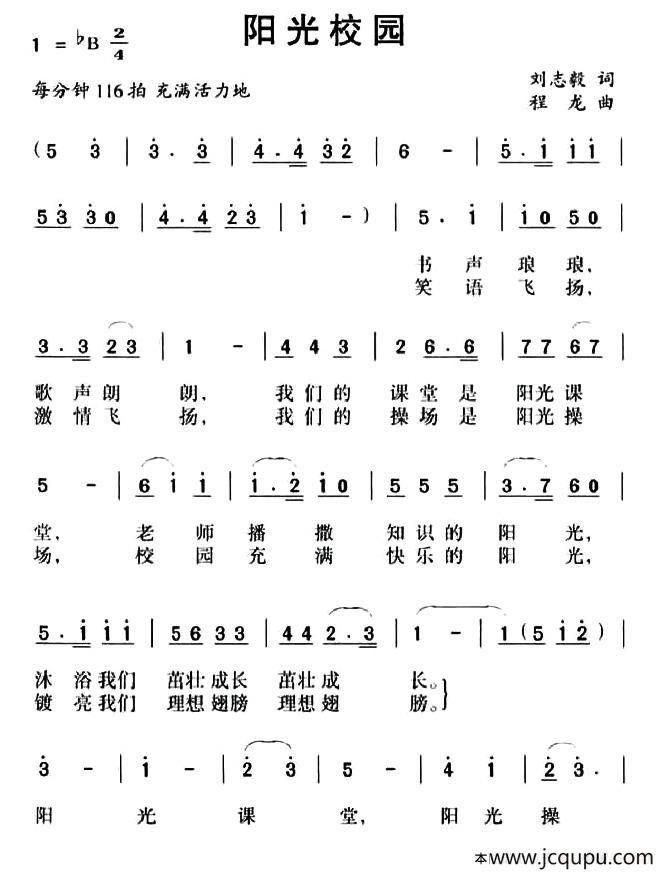 阳光校园
1 = ♭B 2/4
每分钟116拍 充满活力地
刘志毅 词
程 龙 曲
(5 3̇ | 3̇ . 3̇ | 4̇ . 4̇ 3̇ 2̇ | 6 - | 5 . 1̇ 1̇ 1̇ |
5 3̇ 3̇ 0 | 4̇ . 4̇ 2̇ 3̇ | 1̇ - ) | 5 . 1̇ | 1̇ 0 5 0 |
书 声 琅 琅,
笑 语 飞 扬,
3 . 3 2 3 | 1 - | 4 4 3 | 2 6 . 6 | 7 7 6 7 |
歌 声 朗 朗, 我 们 的 课 堂 是 阳光 课
激 情 飞 扬, 我 们 的 操 场 是 阳光 操
5 - | 6 1̇ 1̇ | 1̇ . 2̇ 1̇ 0 | 5 5 5 | 3 . 7 6 0 |
堂, 老 师 播 撒 知 识 的 阳 光,
场, 校 园 充 满 快 乐 的 阳 光,
5 . 1̇ 1̇ 1̇ | 5 6 3 3 | 4 4 2 . 3 | 1 - | 1 ( 5 1̇ 2̇ ) |
沐 浴 我们 茁壮 成长 茁壮 成 长。
镀 亮 我们 理想 翅膀 理想 翅 膀。
3̇ - | 1̇ - | 2̇ 3̇ | 5 - | 4̇ 1̇ | 2̇ 3̇ . |
阳 光 课 堂, 阳 光 操
本www.jcqupu.com